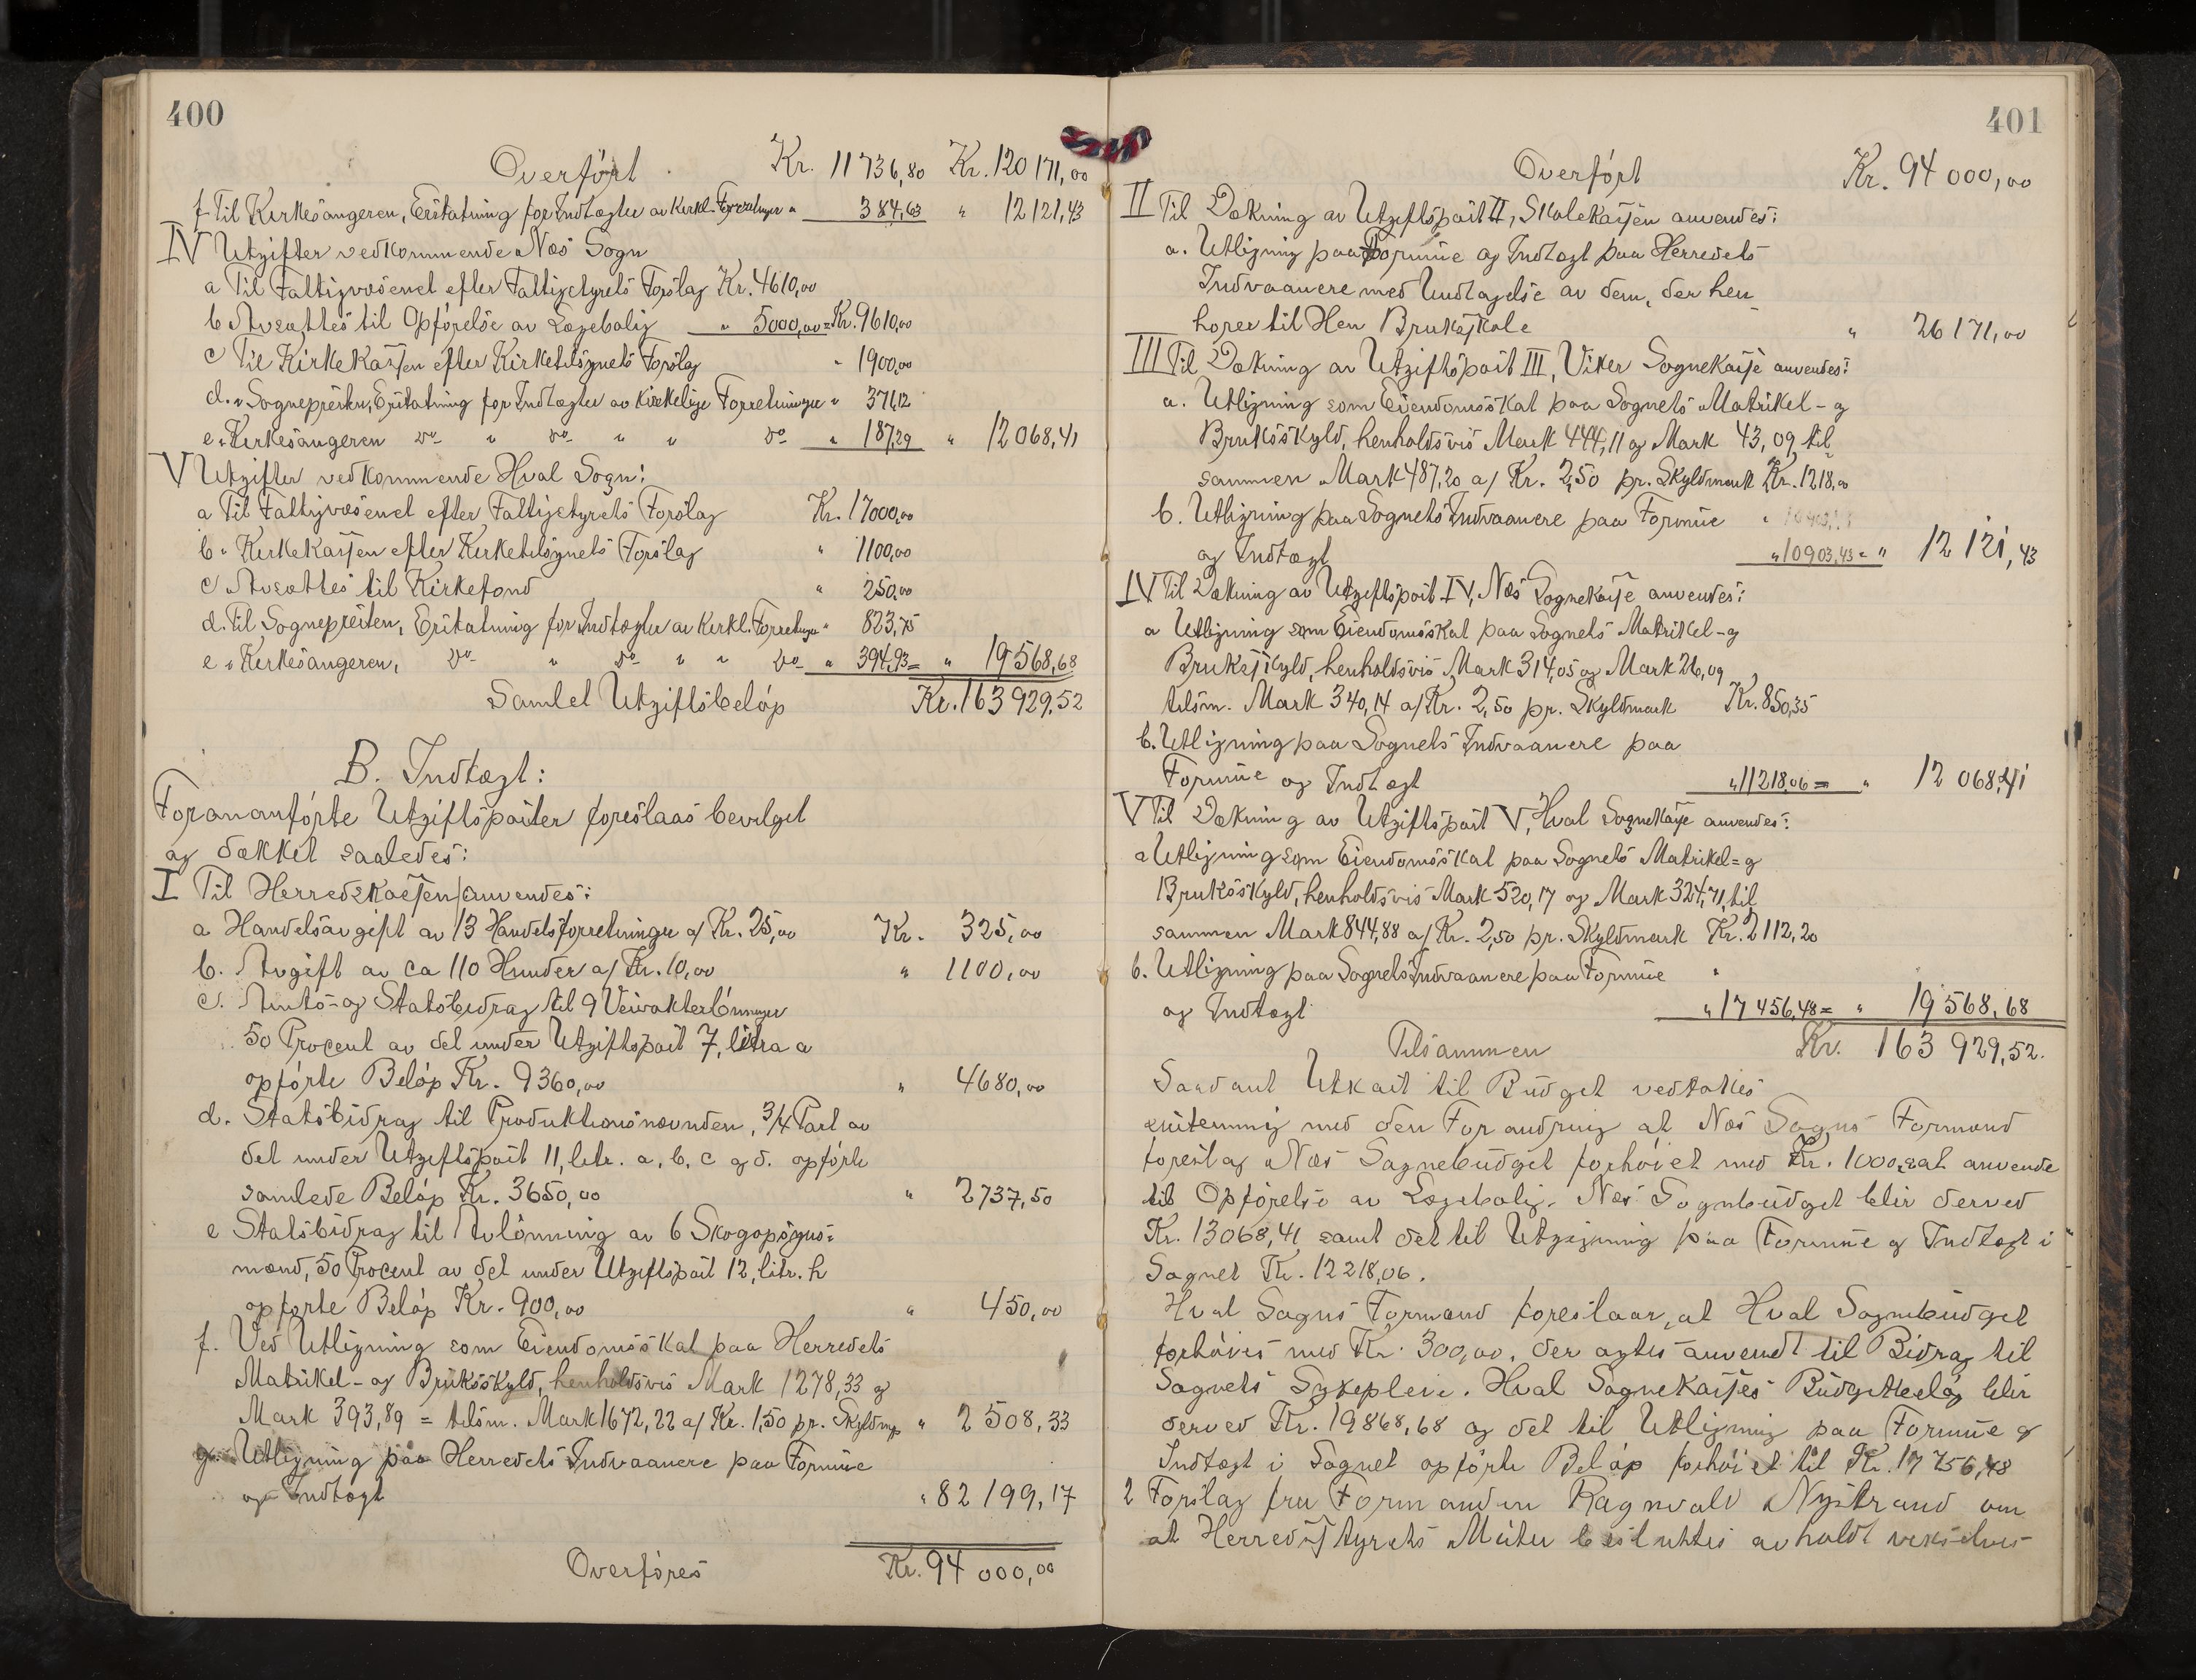 400
Overført Kr. 11736,80 Kr. 120171,00
f Til Kirkesangeren, Erstatning for Indtægter av Kirkl. Forretninger " 384,63 " 12121,43
IV Utgifter vedkommende Næs Sogn
a Til Fattigvæsenet efter Fattigstyrets Forslag Kr. 4610,00
b Avsættes til Opførelse av Lægebolig " 5000,00 = Kr. 9610,00
c Til Kirkekassen efter Kirketilsynets Forslag " 1900,00
d. " Sognepresten, Erstatning for Indtægter av Kirkelige Forretninger " 371,12
e " Kirkesangeren do " do " " do " 187,29 " 12068,41
V Utgifter vedkommende Hval Sogn:
a Til Fattigvæsenet efter Fattigstyrets Forslag Kr. 17000,00
b " Kirkekassen efter Kirketilsynets Forslag " 1100,00
c Avsættes til Kirkefond " 250,00
d. Til Sognepresten, Erstatning for Indtægter av Kirkl. Forretninger " 823,75
e " Kirkesangeren, do " do " " do " 394,93 = " 19568,68
Samlet Utgiftsbeløp Kr. 163929,52
B. Indtægt:
Forananførte Utgiftsposter foreslaas bevilget
og dækket saaledes:
I Til Herredskassen anvendes:
a Handelsavgift av 13 Handelsforretninger a/ Kr. 25,00 Kr. 325,00
b. Avgift av ca 110 Hunder a/ Kr. 10,00 " 1100,00
c. Amts- og Statsbidrag til 9 Veivokterlønninger
50 Procent av det under Utgiftspost 7, litra a
opførte Beløp Kr. 9360,00 " 4680,00
d. Statsbidrag til Produktionsnævnden, 3/4 Part av
det under Utgiftspost 11, litr. a, b, c og d. opførte
samlede Beløp Kr. 3650,00 " 2737,50
e Statsbidrag til Avlønning av 6 Skogopsyns-
mænd, 50 Procent av det under Utgiftspost 12, litr. h
opførte Beløp Kr. 900,00 " 450,00
f. Ved Utligning som Eiendomsskat paa Herredets
Matrikel- og Bruksskyld, henholdsvis Mark 1278,33 og
Mark 393,89 = tilsm. Mark 1672,22 a/ Kr. 1,50 pr. Skyldmp " 2508,33
g. Utligning paa Herredets Indvaanere paa Formue
og Indtægt " 82199,17
Overføres Kr. 94000,00
401
Overført Kr. 94000,00
II Til Dækning av Utgiftspost II, Skolekassen anvendes:
a. Utligning paa Formue og Indtægt paa Herredets
Indvaanere med Undtagelse av dem, der hen
hører til Hen Bruksskole " 26171,00
III Til Dækning av Utgiftspost III, Viker Sognekasse anvendes:
a. Utligning som Eiendomsskat paa Sognets Matrikel- og
Bruksskyld, henholdsvis Mark 444,11 og Mark 43,09, til
sammen Mark 487,20 a/ Kr. 2,50 pr. Skyldmark Kr. 1218,00
b. Utligning paa Sognets Indvaanere paa Formue "
og Indtægt " 10903,43 = " 12121,43
IV Til Dækning av Utgiftspost IV, Næs Sognekasse anvendes:
a Utligning som Eiendomsskat paa Sognets Matrikel- og
Bruksskyld, henholdsvis Mark 314,05 og Mark 26,09
tilsm. Mark 340,14 a/ Kr. 2,50 pr. Skyldmark Kr. 850,35
b. Utligning paa Sognets Indvaanere paa
Formue og Indtægt " 11218,06 = " 12068,41
V Til Dækning av Utgiftspost V, Hval Sognekasse anvendes:
a Utligning som Eiendomsskat paa Sognets Matrikel- og
Bruksskyld, henholdsvis Mark 520,17 og Mark 324,71, til
sammen Mark 844,88 a/ Kr. 2,50 pr. Skyldmark Kr. 2112,20
b. Utligning paa Sognets Indvaanere paa Formue "
og Indtægt " 17456,48 = " 19568,68
Tilsammen Kr. 163929,52.
Saadant Utkast til Budget vedtokes
enstemmig med den Forandring at Næs Sogns Formand
foreslog Næs Sognebudget forhøiet med Kr. 1000, at anvende
til Opførelse av Lægebolig. Næs Sognbudget blir derved
Kr. 13068,41 samt det til Utligning paa Formue og Indtægt i
Sognet Kr. 12218,06.
Hval Sogns Formand foreslaar, at Hval Sognbudget
forhøies med Kr. 300,00, der agtes anvendt til Bidrag til
Sognets Sykepleie. Hval Sognekasses Budgetbeløp blir
derved Kr. 19868,68 og det til Utligning paa Formue og
Indtægt i Sognet opførte Beløp forhøiet til Kr. 17756,48
2 Forslag fra Formanden Ragnvald Nystrand om
at Herredsstyrets Møter besluttes avholdt vekselvis